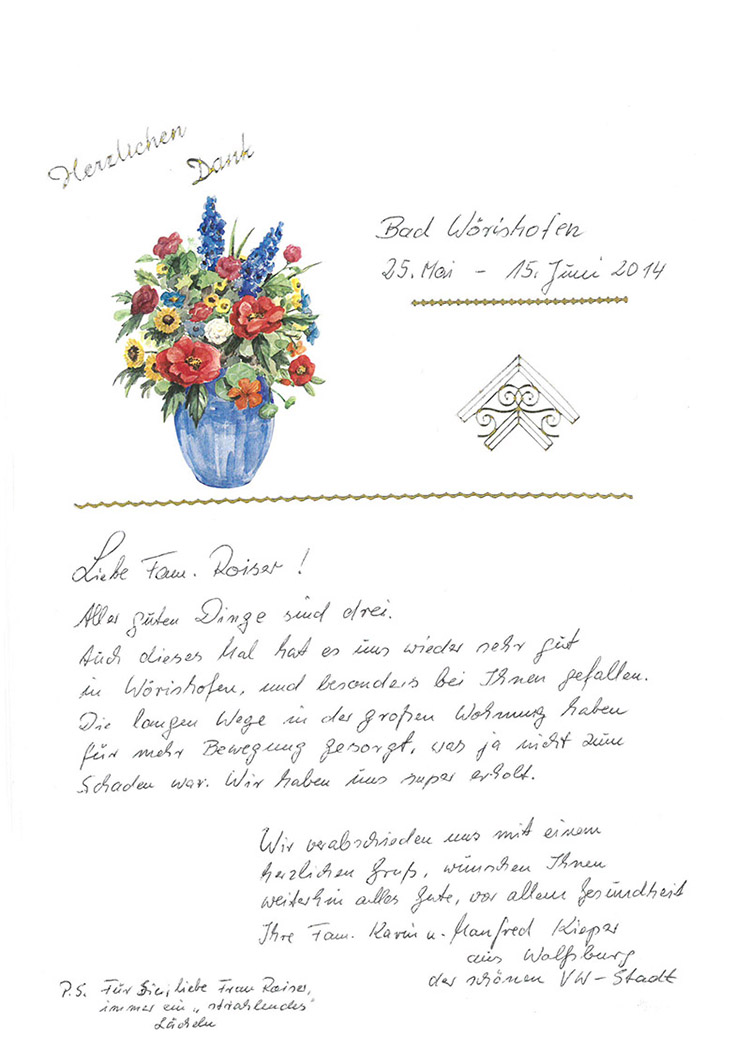 Herzlichen
Dank
Bad Wörishofen
25. Mai - 15. Juni 2014
Liebe Fam. Roiser!
Aller guten Dinge sind drei.
Auch dieses Mal hat es uns wieder sehr gut
in Wörishofen, und besonders bei Ihnen gefallen.
Die langen Wege in der großen Wohnung haben
für mehr Bewegung gesorgt, was ja nicht zum
Schaden war. Wir haben uns super erholt.
Wir verabschieden uns mit einem
herzlichen Gruß, wünschen Ihnen
weiterhin alles Gute, vor allem Gesundheit
Ihre Fam. Karin u. Manfred Kieper
aus Wolfsburg
der schönen VW-Stadt
P.S. Für Sie, liebe Frau Roiser,
immer ein „strahlendes"
Lächeln